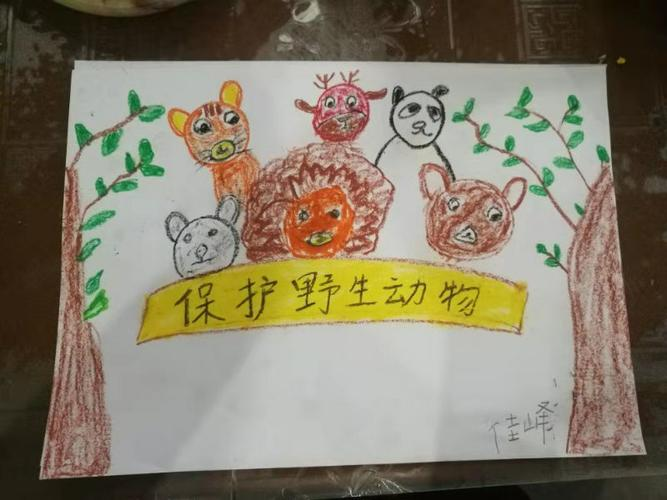 保护野生动物
佳峰